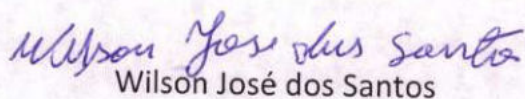 Wilson Jose dos Santos
Wilson José dos Santos